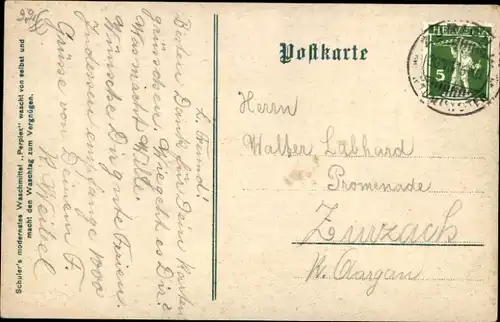 Schuler's modernstes Waschmittel „Perplex" wascht von selbst und
macht den Waschtag zum Vergnügen.
L. Freund!
Besten Dank für Dein Karten
grüsschen. Wie geht es Dir?
Was macht Willi.
Wünsche Dir gute Ferien.
Indessen empfange 1000
Grüsse von Deinem F.
W. Weibel
Postkarte
HELVETIA
5
Herrn
Walter Läbhard
Promenade
Zurzach
Kt. Aargau